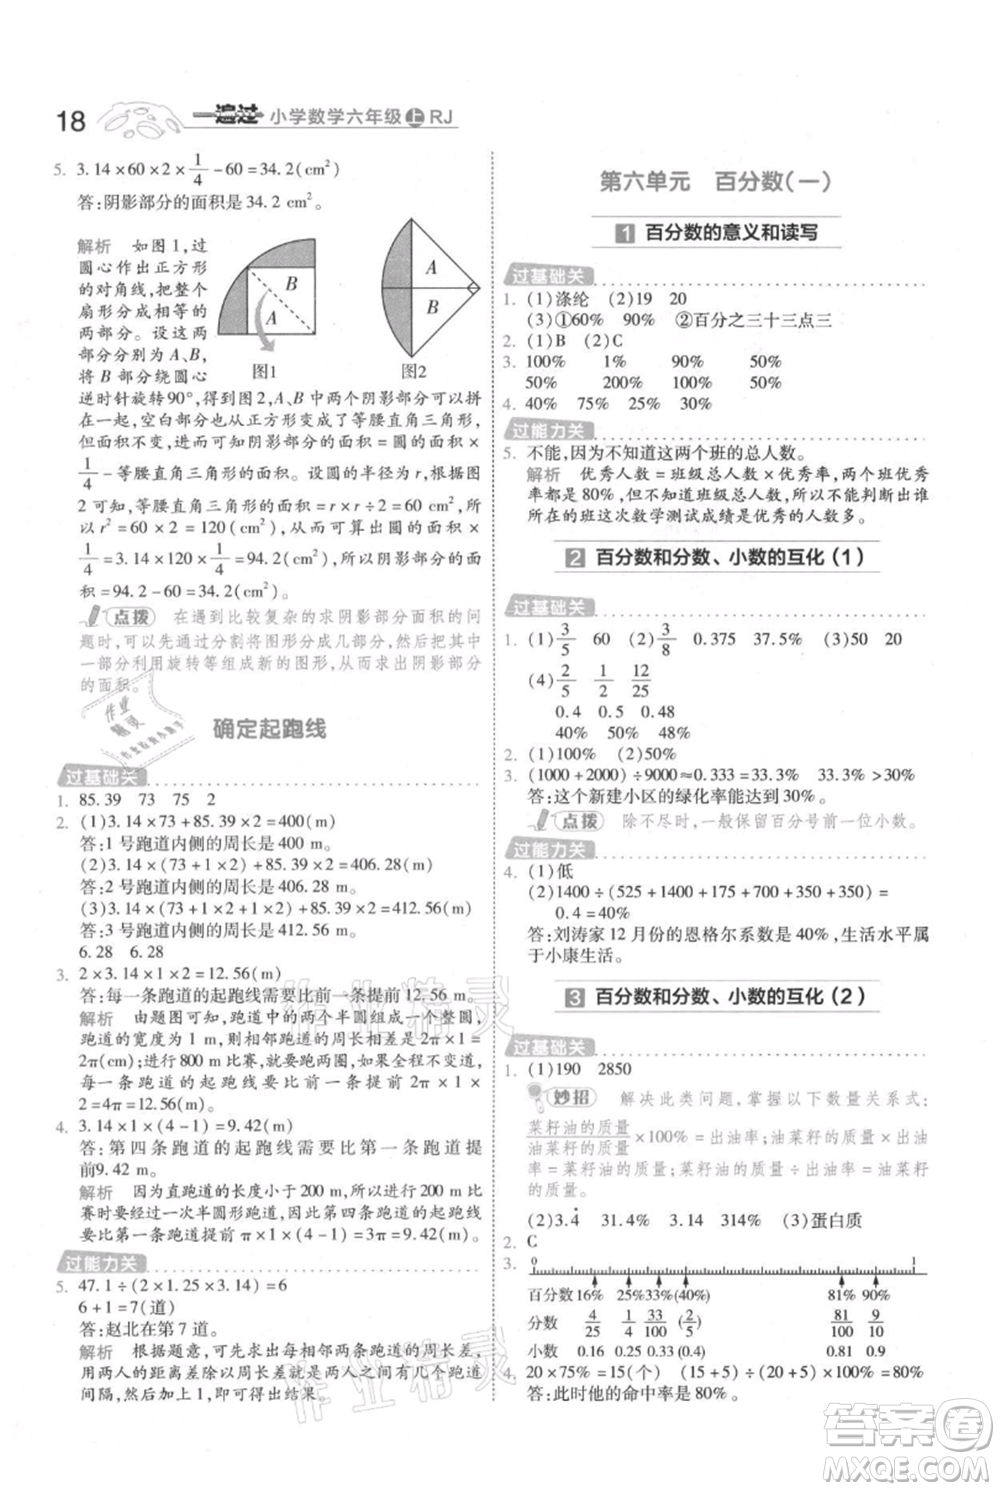 18 一遍过 小学数学六年级上RJ
5. 3.14×60×2×1/4-60=34.2(cm²)
答:阴影部分的面积是 34.2 cm²。
解析 如图 1,过
圆心作出正方形
的对角线,把整个
扇形分成相等的
两部分。设这两
部分分别为 A、B,
将 B 部分绕圆心
A
B
图1
A
B
图2
逆时针旋转90°,得到图2,A、B 两个阴影部分可以拼
在一起,空白部分也从正方形变成了等腰直角三角形,
但面积不变,这时可知阴影部分的面积=圆的面积×
1/4-等腰直角三角形的面积。设圆的半径为 r,根据图
2 可知,等腰直角三角形的面积=r×r÷2=60(cm²),所
以 r²=60×2=120(cm²),从而可算出圆的面积×
1/4=3.14×120×1/4=94.2(cm²),所以阴影部分的面
积为 94.2-60=34.2(cm²)。
点拨 在遇到比较复杂的求阴影部分面积的问
题时,可以先通过分割将图形分成几部分,然后将其中
一部分利用旋转等组成新的图形,从而求出阴影部分
的面积。
确定起跑线
过基础关
1. 85.39 73 75 2
2. (1)3.14×73+85.39×2=400(m)
答:1 号跑道内侧的周长是 400 m。
(2)3.14×(73+1×2)+85.39×2=406.28(m)
答:2 号跑道内侧的周长是 406.28 m。
(3)3.14×(73+1×2+1×2)+85.39×2=412.56(m)
答:3 号跑道内侧的周长是 412.56 m。
6.28 6.28
3. 2×3.14×1×2=12.56(m)
答:每一条跑道的起跑线需要比前一条提前 12.56 m。
解析 由题图可知,跑道中的两个半圆组成一个整圆,
跑道的宽度为 1 m,则相邻跑道相差的长度为 2π×1=
2π(m);进行 800 m 比赛有两圈,如果全程不变道,
每一条跑道的起跑线需要比前一条跑道提前 2π×1
×2=4π=12.56(m)。
4. 3.14×1×(4-1)=9.42(m)
答:第四条跑道的起跑线需要比第一条跑道提
前9.42 m。
解析 因为直跑道的长度小于 200 m,所以 200 m 比
赛时要经过一次半圆形跑道,因此第四条跑道的起跑
线需要比第一条跑道提前 π×1×(4-1)=9.42(m)。
过能力关
5. 47.1÷(2×1.25×3.14)=6
6+1=7(道)
答:赵北在第 7 道。
解析 根据题意,可先求出每相邻两条跑道的周长差,
用两人的距离差除以周长差求出两人之间的跑道
间隔,然后再加 1,得出跑道数。
第六单元 百分数(一)
1 百分数的意义和读写
过基础关
1. (1)涤纶 (2)19 20
(3)①60% 90% ②百分之三十三点三
2. (1)B (2)C
3. 100% 1% 90% 50%
50% 200% 100% 50%
4. 40% 75% 25% 50%
过能力关
5. 不能,因为不知道这两个班的总人数。
解析 优秀人数=班级总人数×优秀率,两个班优秀
率都是80%,但不知道班级总人数,所以不能判断出谁
所在的班这次数学测试成绩是优秀的人数多。
2 百分数和分数、小数的互化(1)
过基础关
1. (1)3/5 60 (2)3/8 0.375 37.5% (3)50 20
(4)2/5 1/2 12/25
0.4 0.5 0.48
40% 50% 48%
2. (1)100% (2)100%
3. (1000+2000)÷9000≈0.333=33.3% 33.3%>30%
答:这个新建小区的绿化率能达到 30%。
点拨 除不尽时,一般保留百分号前一位小数。
过能力关
4. (1)低
(2)1400÷(525+1400+175+700+350+350)=
0.4=40%
答:刘涛家 12 月份的恩格尔系数是 40%,生活水平属
于小康生活。
3 百分数和分数、小数的互化(2)
过基础关
1. (1)190 2850
妙招 解决此类问题,掌握以下数量关系式:
菜籽油的质量/油菜籽的质量×100%=出油率;油菜籽的质量×出油
率=菜籽油的质量;菜籽油的质量÷出油率=油菜籽
的质量。
(2)3.4̇ 31.4% 3.14 314% (3)蛋白质
2. C
3. 0 1
百分数 16% 25% 33% (40%) 81% 90%
分数 4/25 1/4 33/100 (2/5) 81/100 9/10
小数 0.16 0.25 0.33 (0.4) 0.81 0.9
4. 20×75%=15(个) (15+5)÷(20+5)=80%
答:此时他的命中率是 80%。
作业精灵
作业精灵
答案圈
MXQE.COM